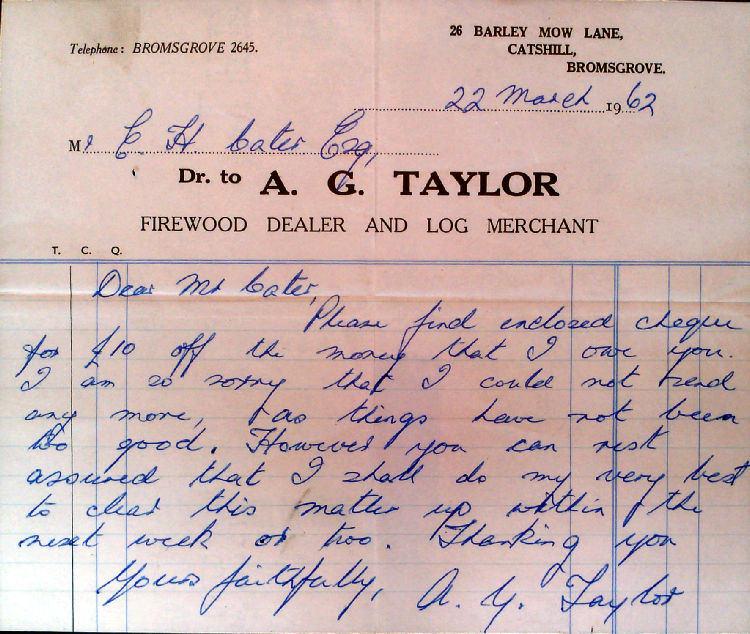 Telephone: BROMSGROVE 2645.
26 BARLEY MOW LANE,
CATSHILL,
BROMSGROVE.
22 March 1962
Mr C H Cater Esq,
Dr. to A. G. TAYLOR
FIREWOOD DEALER AND LOG MERCHANT
T. C. Q.
Dear Mr Cater,
Please find enclosed cheque
for £10 off the money that I owe you.
I am so sorry that I could not send
any more, as things have not been
to good. However you can rest
assured that I shall do my very best
to clear this matter up within the
next week or two. Thanking you
Yours faithfully, A. G. Taylor